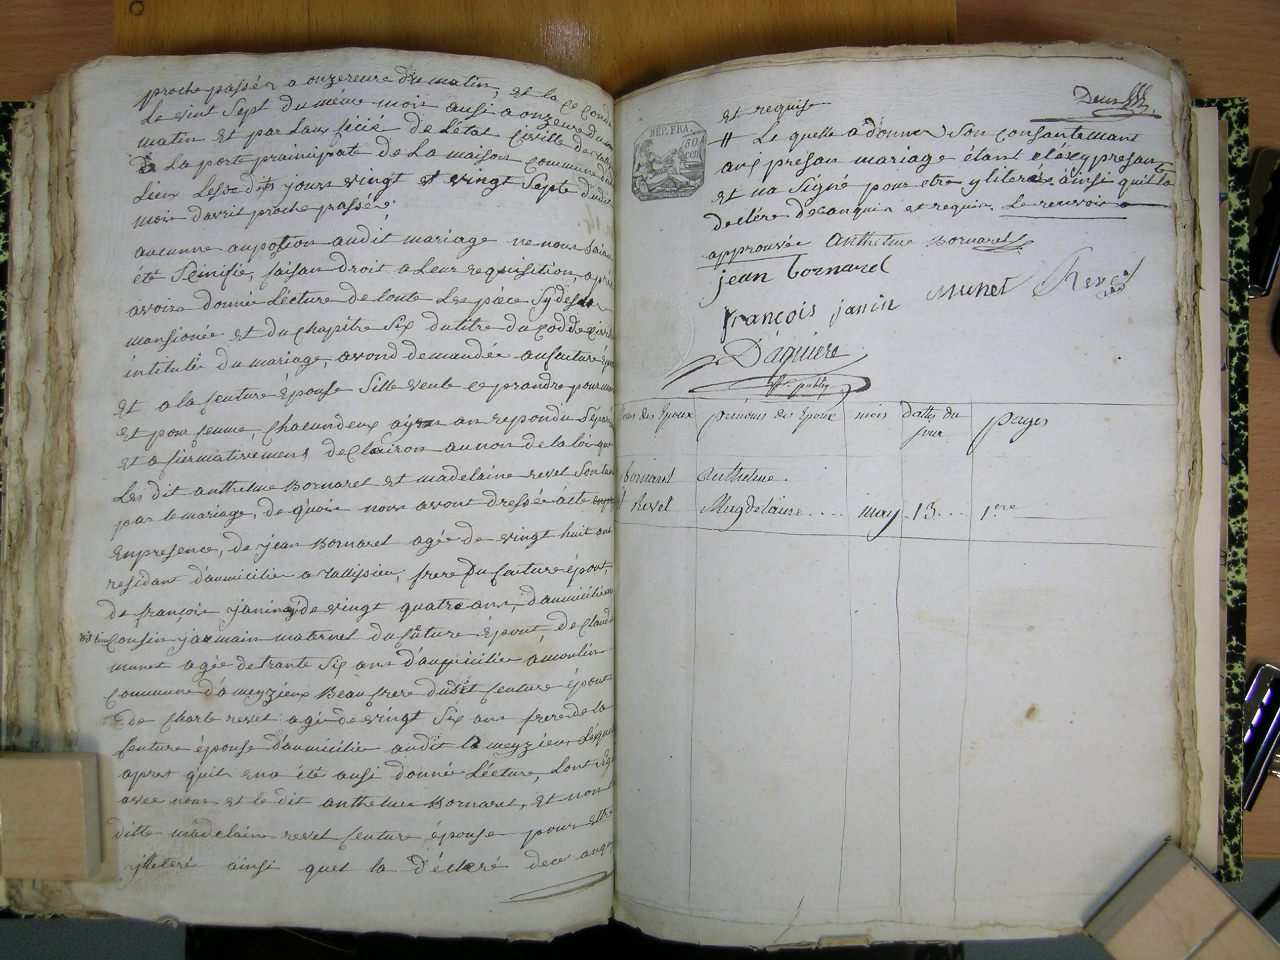 proche passér a onzereure du matin, et la Seconde
Le vint Sept du même mois ausi a onzeure du
matin Et par Laux ficié de L'état Civille de
a La porte prainsipale de La maison Commune du
Lieu Lesdits yours vingt et vingt Septe dudit
mois davrit proche passée.
aucunne auposition audit mariage ne nous
été Seinifié, faisan droit a Leur requisition, apres
avoir donné Lécture de toute Les pièce Sy desu
mansionée et du chapitre Six du titre du Codde Civil
intitulé du mariage, avond demandée aufuture
Et a la feuture Epouse Sille veule ce prandre pour mari
Et pour feume, Chacundeux an repondu Séparé
et a fiermativement declairon au nom de la loi que
Les dit anthelme Bornaret et madelaine revet Son
par le mariage, de quoi nous avont dressée acte
Enpresence, de jean Bornaret agée de vingt huit ans
residant daumicilié a tallissieu, frere du feuture épout,
de françois janin de vingt quatre ans, daumicilié
Cousin jairmain maternel du future Epout, de Claude
munet agée de trante Six ans d'aumicilié a moulin
Commune d'ameyzieux Beaufrere dudit feuture épout
de Charle revet agé de vingt Six ans frere de la
feuture épouse d'aumicilié audit ameyzieu, Léquel
apres quil Ena été ausi donnée Lécture, Lont
avec nous et le dit anthelme Bornaret, Et non la
ditte madelaine revet feuture épouse pour etre
ylleteré ainsi quel la déclaré dece anqui
Deux
et requise
REP. FRA.
# Le quelle a donner Son consantemant
aus presan mariage étant
et na Signé pour etre yliterée ainsi quil la
declére decanquis et requis. Le renvoi
approuvée anthelme Bornaret
jean bornarel
françois janin munet Revet
Daquiere
off. public
noms des Epoux prénoms des Epoux mois dattes du jour pages
Bornaret anthelme
et Revet Magdelaine .... may . 13 ... 1ere